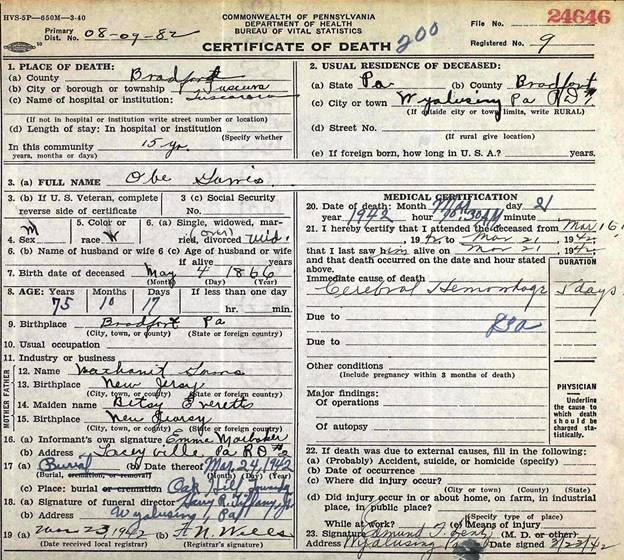 HVS-5P—650M—3-40
COMMONWEALTH OF PENNSYLVANIA
DEPARTMENT OF HEALTH
BUREAU OF VITAL STATISTICS
File No. 24646
Primary
Dist. No. 08-09-82
CERTIFICATE OF DEATH
200
Registered No. 9
1. PLACE OF DEATH:
(a) County Bradfort
(b) City or borough or township Tuscura
(c) Name of hospital or institution: Tuscarora
(If not in hospital or institution write street number or location)
(d) Length of stay: In hospital or institution
(Specify whether
In this community 15 yr.
years, months or days)
2. USUAL RESIDENCE OF DECEASED:
(a) State Pa (b) County Bradfort
(c) City or town Wyalusing Pa RD
(If outside city or town limits, write RURAL)
(d) Street No.
(If rural give location)
(e) If foreign born, how long in U. S. A.? years.
3. (a) FULL NAME Obe
3. (b) If U. S. Veteran, complete
reverse side of certificate
3. (c) Social Security
No.
4. Sex M
5. Color or
race W
6. (a) Single, widowed, mar-
ried, divorced wid.
6. (b) Name of husband or wife
6 (c) Age of husband or wife
if alive years
7. Birth date of deceased May 4 1866
(Month) (Day) (Year)
8. AGE: Years Months Days If less than one day
75 10 17 hr. min.
9. Birthplace Bradfort Pa
(City, town, or county) (State or foreign country)
10. Usual occupation
11. Industry or business
MOTHER FATHER
12. Name
13. Birthplace New Jersy
(City, town, or county) (State or foreign country)
14. Maiden name Betsy Everetts
15. Birthplace New Jearsy
(City, town, or county) (State or foreign country)
16. (a) Informant's own signature Emma
(b) Address Laceyville Pa RD #2
17. (a) Burial (b) Date thereof Mar. 24, 1942
(Burial, cremation, or removal) (Month) (Day) (Year)
(c) Place: burial or cremation Oak Hill
18. (a) Signature of funeral director Harry P. Tiffany
(b) Address Wyalusing, Pa
19. (a) Mar 23, 1942 (b) F. N. Wells
(Date received local registrar) (Registrar's signature)
MEDICAL CERTIFICATION
20. Date of death: Month Mar day 21
year 1942 hour 10:30 AM minute
21. I hereby certify that I attended the deceased from Mar 16,
1942 to Mar 21, 1942,
that I last saw him alive on Mar 21, 1942,
and that death occurred on the date and hour stated
above.
DURATION
Immediate cause of death
Cerebral Hemorrhage 5 days
Due to
83a
Due to
Other conditions
(Include pregnancy within 3 months of death)
PHYSICIAN
Underline
the cause to
which death
should be
charged sta-
tistically.
Major findings:
Of operations
Of autopsy
22. If death was due to external causes, fill in the following:
(a) (Probably) Accident, suicide, or homicide (specify)
(b) Date of occurrence
(c) Where did injury occur?
(City or town) (County) (State)
(d) Did injury occur in or about home, on farm, in industrial
place, in public place?
(Specify type of place)
While at work? (e) Means of injury
23. Signature Edmund (M. D. or other)
Address Wyalusing Pa Date signed 3/23/42